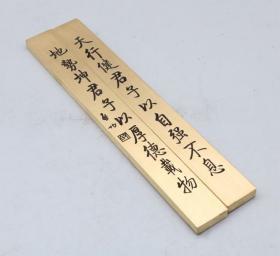 天行健君子以自强不息
地势坤君子以厚德載物
启功